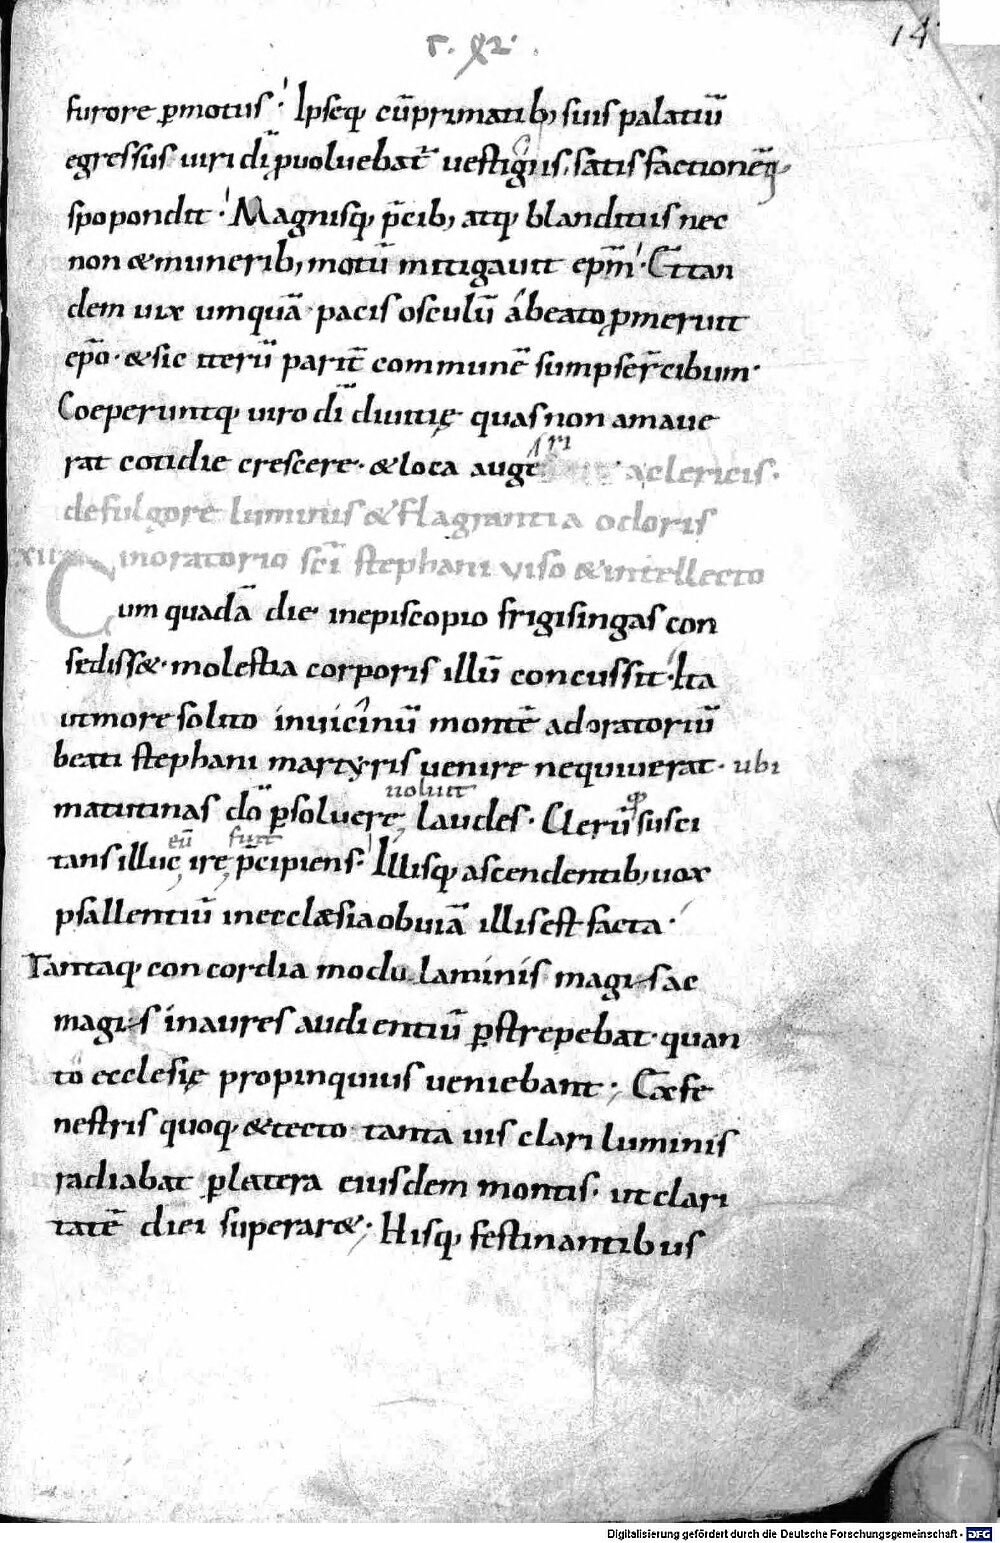 14
furore p̱motus· Ipseq; cū primatib; suis palatiū
egressus uiri dī ꝓuoluebat᷑ uestigiis, satisfactionēq;
spopondit· Magnisq; p̄cib; atq; blanditiis nec
non & munerib; motū mitigauit ep̄m· Et tan
dem uix umquā pacis osculū a beato p̱meruit
ep̄o· & sic iterū parit̄ communē sumpser̄ cibum·
Coeperuntq; uiro dī diuitię quas non amaue
rat cotidie crescere· & loca augeri
a clericis·
de fulgore luminis & flagrantia odoris
XII in oratorio sc̄i stephani viso & intellecto
Cum quadā die in episcopio frigisingas con
sediss&· molestia corporis illū concussit· Ita
ut more solito in uicinū montē ad oratoriū
beati stephani martyris uenire nequiuerat· ubi
uoluit
matutinas dō p̱soluere laudes· Clerū susci
eū fuit
tans illuc ire p̄cipiens· Illisq; ascendentib; uox
psallentiū in ecclæsia obuiā illis est facta·
Tantaq; concordia modulaminis magis ac
magis in aures audientiū p̱strepebat· quan
to ecclesię propinquius ueniebant; Ex fe
nestris quoq; & tecto tanta uis clari luminis
radiabat p̱ latera eiusdem montis· ut clari
tatē diei superar&; Hisq; festinantibus
Digitalisierung gefördert durch die Deutsche Forschungsgemeinschaft - DFG